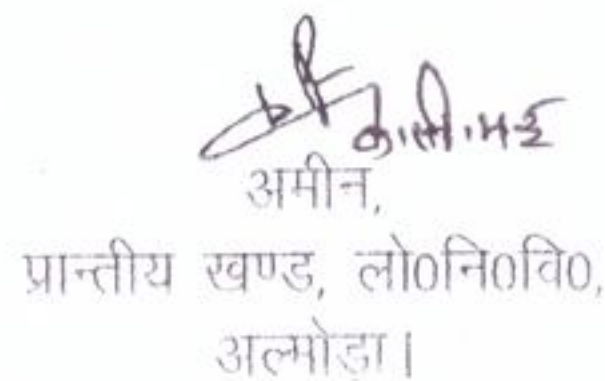 अमीन,
प्रान्तीय खण्ड, लो0नि0वि0,
अल्मोड़ा।